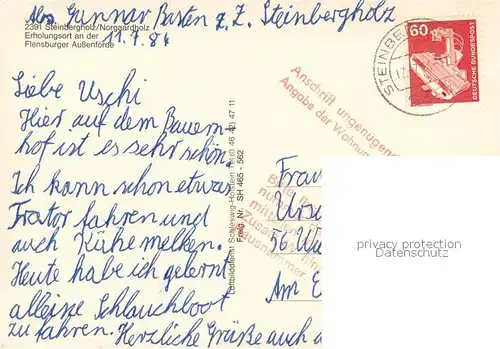 Abs. Gunnar Basten z. Z. Steinbergholz
2391 Steinbergholz/Norgaardholz
Erholungsort an der
Flensburger Außenförde
11.7.86
Liebe Uschi
Hier auf dem Bauern-
hof ist es sehr schön.
Ich kann schon etwas
Trator fahren und
auch Kühe melken.
Heute habe ich gelernt
alleine Schlauchboot
zu fahren. Herzliche Grüße auch a
Luftbilddienst Schleswig-Holstein Tel (0 46 42) 47 11
Freig. Nr. SH 465 - 562
Anschrift ungenügend
Angabe der Wohnu
STEINBE
60
DEUTSCHE BUNDESPOST
Frau
Ursu
56 Wu
Am E
privacy protection
Datenschutz